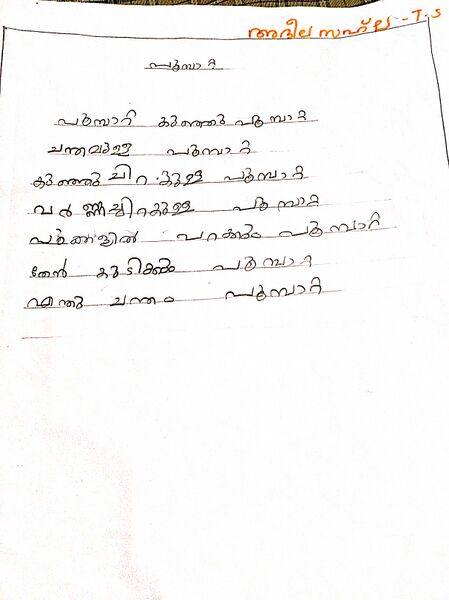 അദീല സഹ്ല - T.S
പൂമ്പാറ്റ
പൂമ്പാറ്റ കുഞ്ഞു പൂമ്പാറ്റ
ചന്തമുള്ള പൂമ്പാറ്റ
കുഞ്ഞു ചിറകുള്ള പൂമ്പാറ്റ
വർണ്ണചിറകുള്ള പൂമ്പാറ്റ
പൂക്കളിൽ പറക്കും പൂമ്പാറ്റ
തേൻ കുടിക്കും പൂമ്പാറ്റ
എന്തു ചന്തം പൂമ്പാറ്റ